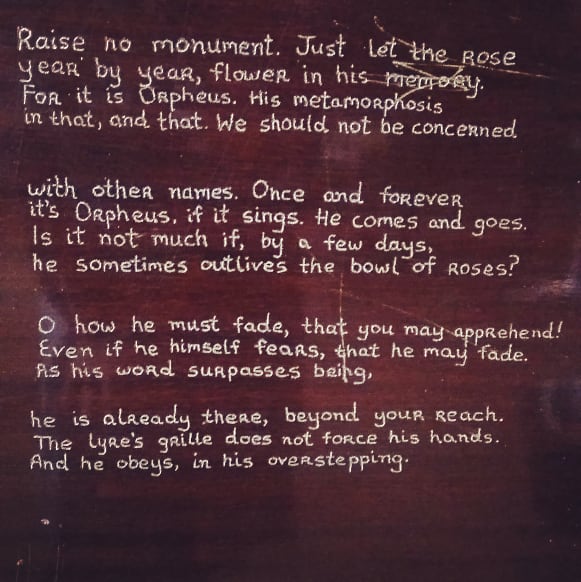 Raise no monument. Just let the Rose
year by year, flower in his memory.
For it is Orpheus. His metamorphosis
in that, and that. We should not be concerned
with other names. Once and forever
it's Orpheus, if it sings. He comes and goes.
Is it not much if, by a few days,
he sometimes outlives the bowl of roses?
O how he must fade, that you may apprehend!
Even if he himself fears, that he may fade.
As his word surpasses being,
he is already there, beyond your reach.
The lyre's grille does not force his hands.
And he obeys, in his overstepping.